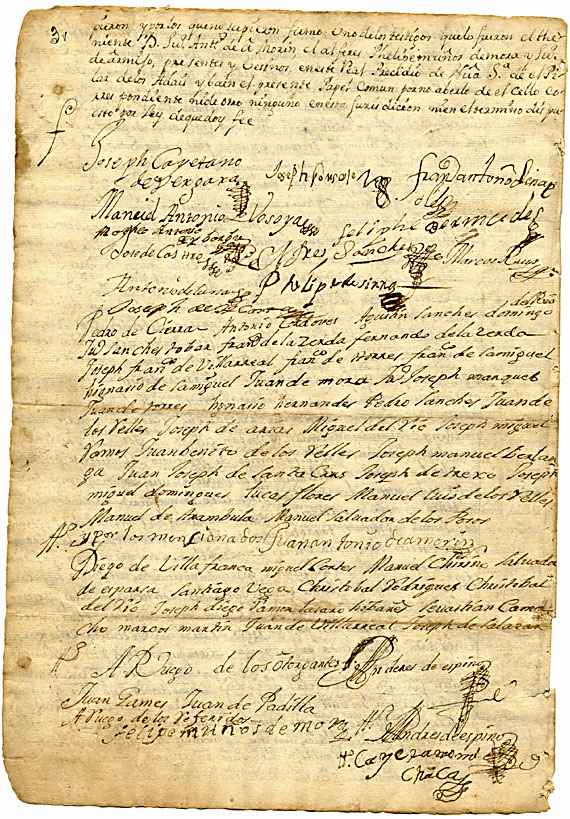 3
pieron y por los que no supieron firmo Uno de los testigos que lo fueron el the
niente D. Ju.n Ant.o de Morin el alferes Phelipe muños de mora y Ju.n
de armijo, presentes y Vesinos, en este Real Presidio de N.ra S.a de el Pi
lar de los Adais y ba en el presente Papel Comun por no aberlo de el Cello Co
rres pondiente ni de otro ninguno en esta Jurisdicion ni en el termino dis pu
esto por ley de que doy fee
Joseph Cayetano
de Vergara
Joseph Gonsales
Fran.co Antonio
Manuel Antonio Losoya
Feliphe Bermudes
Jose de Castro
Andres Sanches
Marcos Ruis
Antonio de luna
Phelipe de sierra
Joseph de la
Pedro de Cierra Antonio Cordoves Agustin sanches domingo del Rio
Ju.n Sanches tobar fran.co de la zerda fernando de la zerda
Joseph fran.co de Villarreal fran.co de torres fran.co de Samiguel
Hignasio de Samiguel Juan de mora Ju.n Joseph marques
Juan de torres honasio hernandes Pedro sanches Juan de
los Relles Joseph de arias Miguel del Rio Joseph miguel
Ramos Juan benito de los Relles Joseph manuel berlan
ga Juan Joseph de Santa Crus Joseph de trexo Joseph
miguel domingues Lucas flores Manuel Luis de los Relles
Manuel de Arambula Manuel Salvador de los Poros
y por los mensionados Juan antonio de amorin
Diego de Villa franca miguel Cortes Manuel Chirino Salvador
de esparsa Santiago Vega Christobal Rodrigues Christobal
del Rio Joseph diego Ramon Lasaro hibañes Sevastian Cama
cho marcos martin Juan de Villarreal Joseph de Salazar
A Ruego de los otorgantes Anderes de espino
Juan Games Juan de Padilla
A Ruego de los Referidos
felipe muños de mora
Andres de espino
Cayetano
Chaca